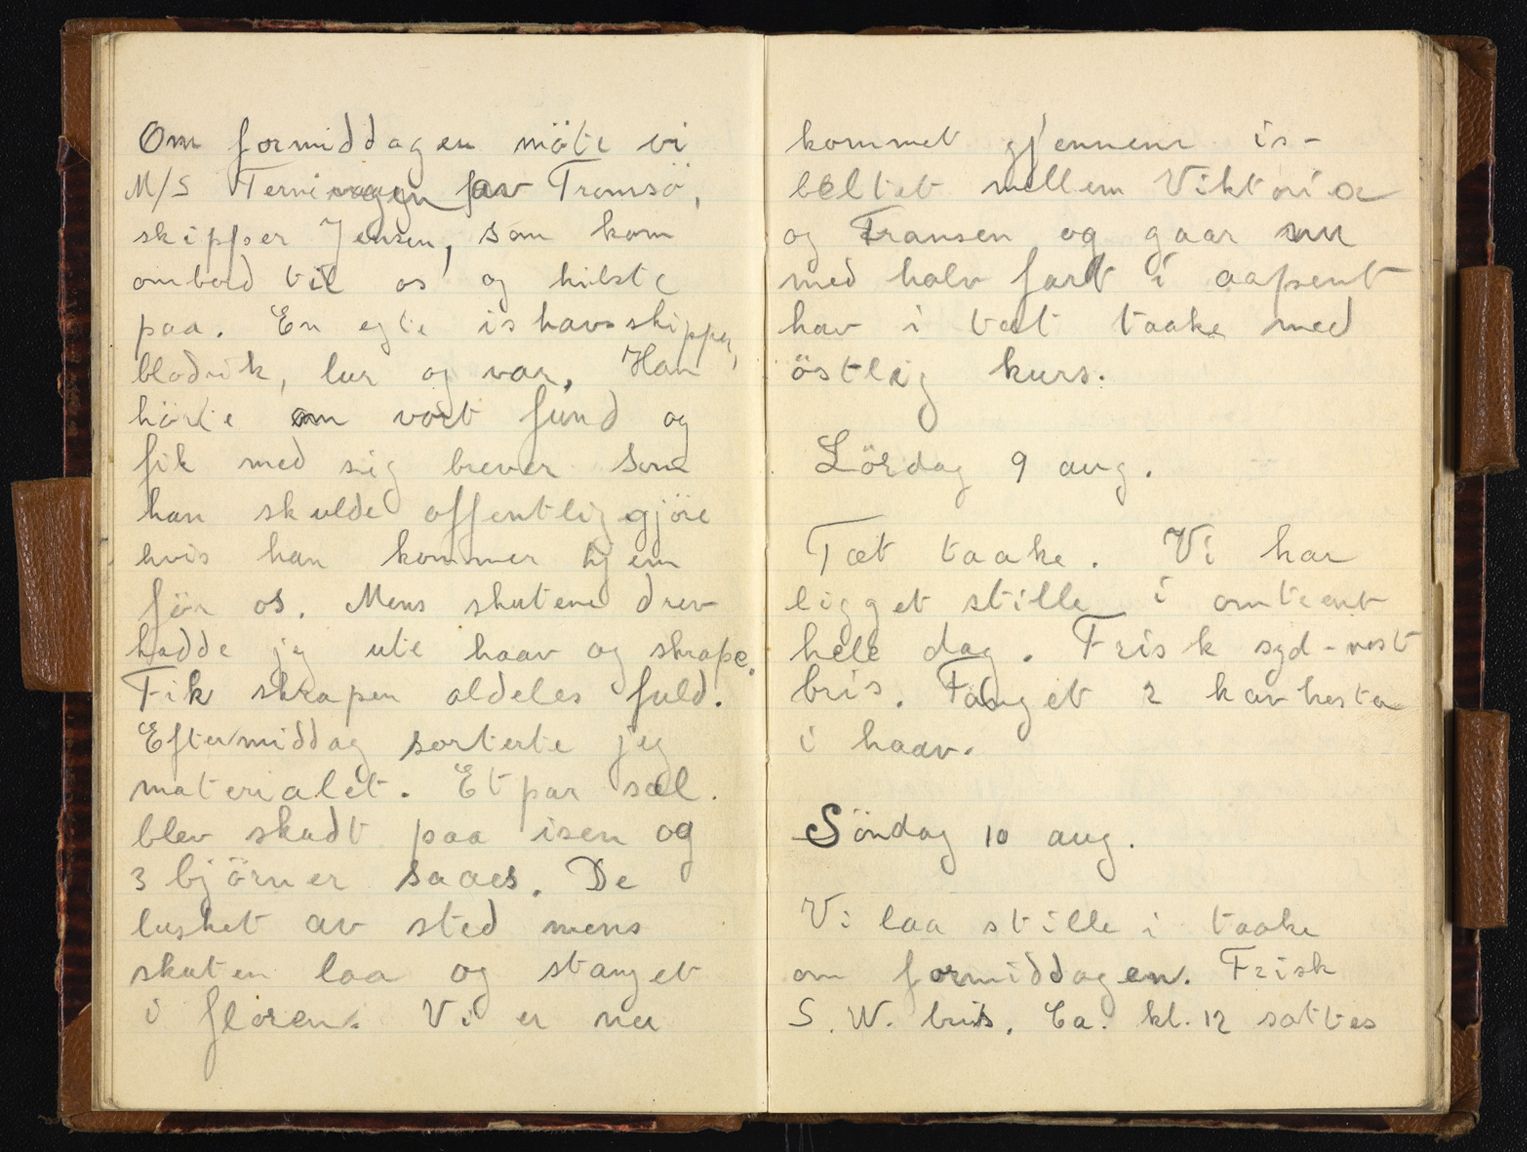 Om formiddagen möte vi
M/S Terningen fav Tromsö,
skipper Jensen, som kom
ombord til os og hilste
paa. En egte ishavsskipper,
blodrik, lur og var. Han
hörte om vort fund og
fik med sig brever som
han skulde offentliggjöre
hvis han kommer hjem
för os. Mens skutene drev
hadde jeg ute haav og skrape.
Fik skrapen aldeles fuld.
Eftermiddag sorterte jeg
materialet. Et par sæl
blev skudt paa isen og
3 björner saaes. De
lusket av sted mens
skuten laa og stanget
i floren. Vi er nu
kommet gjennem is-
beltet mellem Viktoria
og Fransen og gaar nu
med halv fart i aapent
hav i tæt taake med
östlig kurs.
Lördag 9 aug.
Tæt taake. Vi har
ligget stille i omtrent
hele dag. Frisk syd-vest
bris. Fanget 2 havhesta
i haav.
Söndag 10 aug.
Vi laa stille i taake
om formiddagen. Frisk
S.W. bris. Ca. kl. 12 sattes